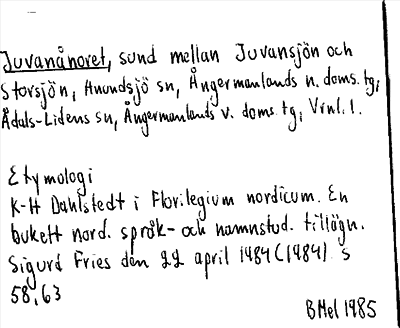 Juvanånoret, sund mellan Juvansjön och
Storsjön, Anundsjö sn, Ångermanlands n. doms. tg,
Ådals-Lidens sn, Ångermanlands v. doms. tg, Vrnl. l.
Etymologi
K-H Dahlstedt i Florilegium nordicum. En
bukett nord. språk- och namnstud. tillägn.
Sigurd Fries den 22 april 1984 (1984) s
58, 63
BMel 1985